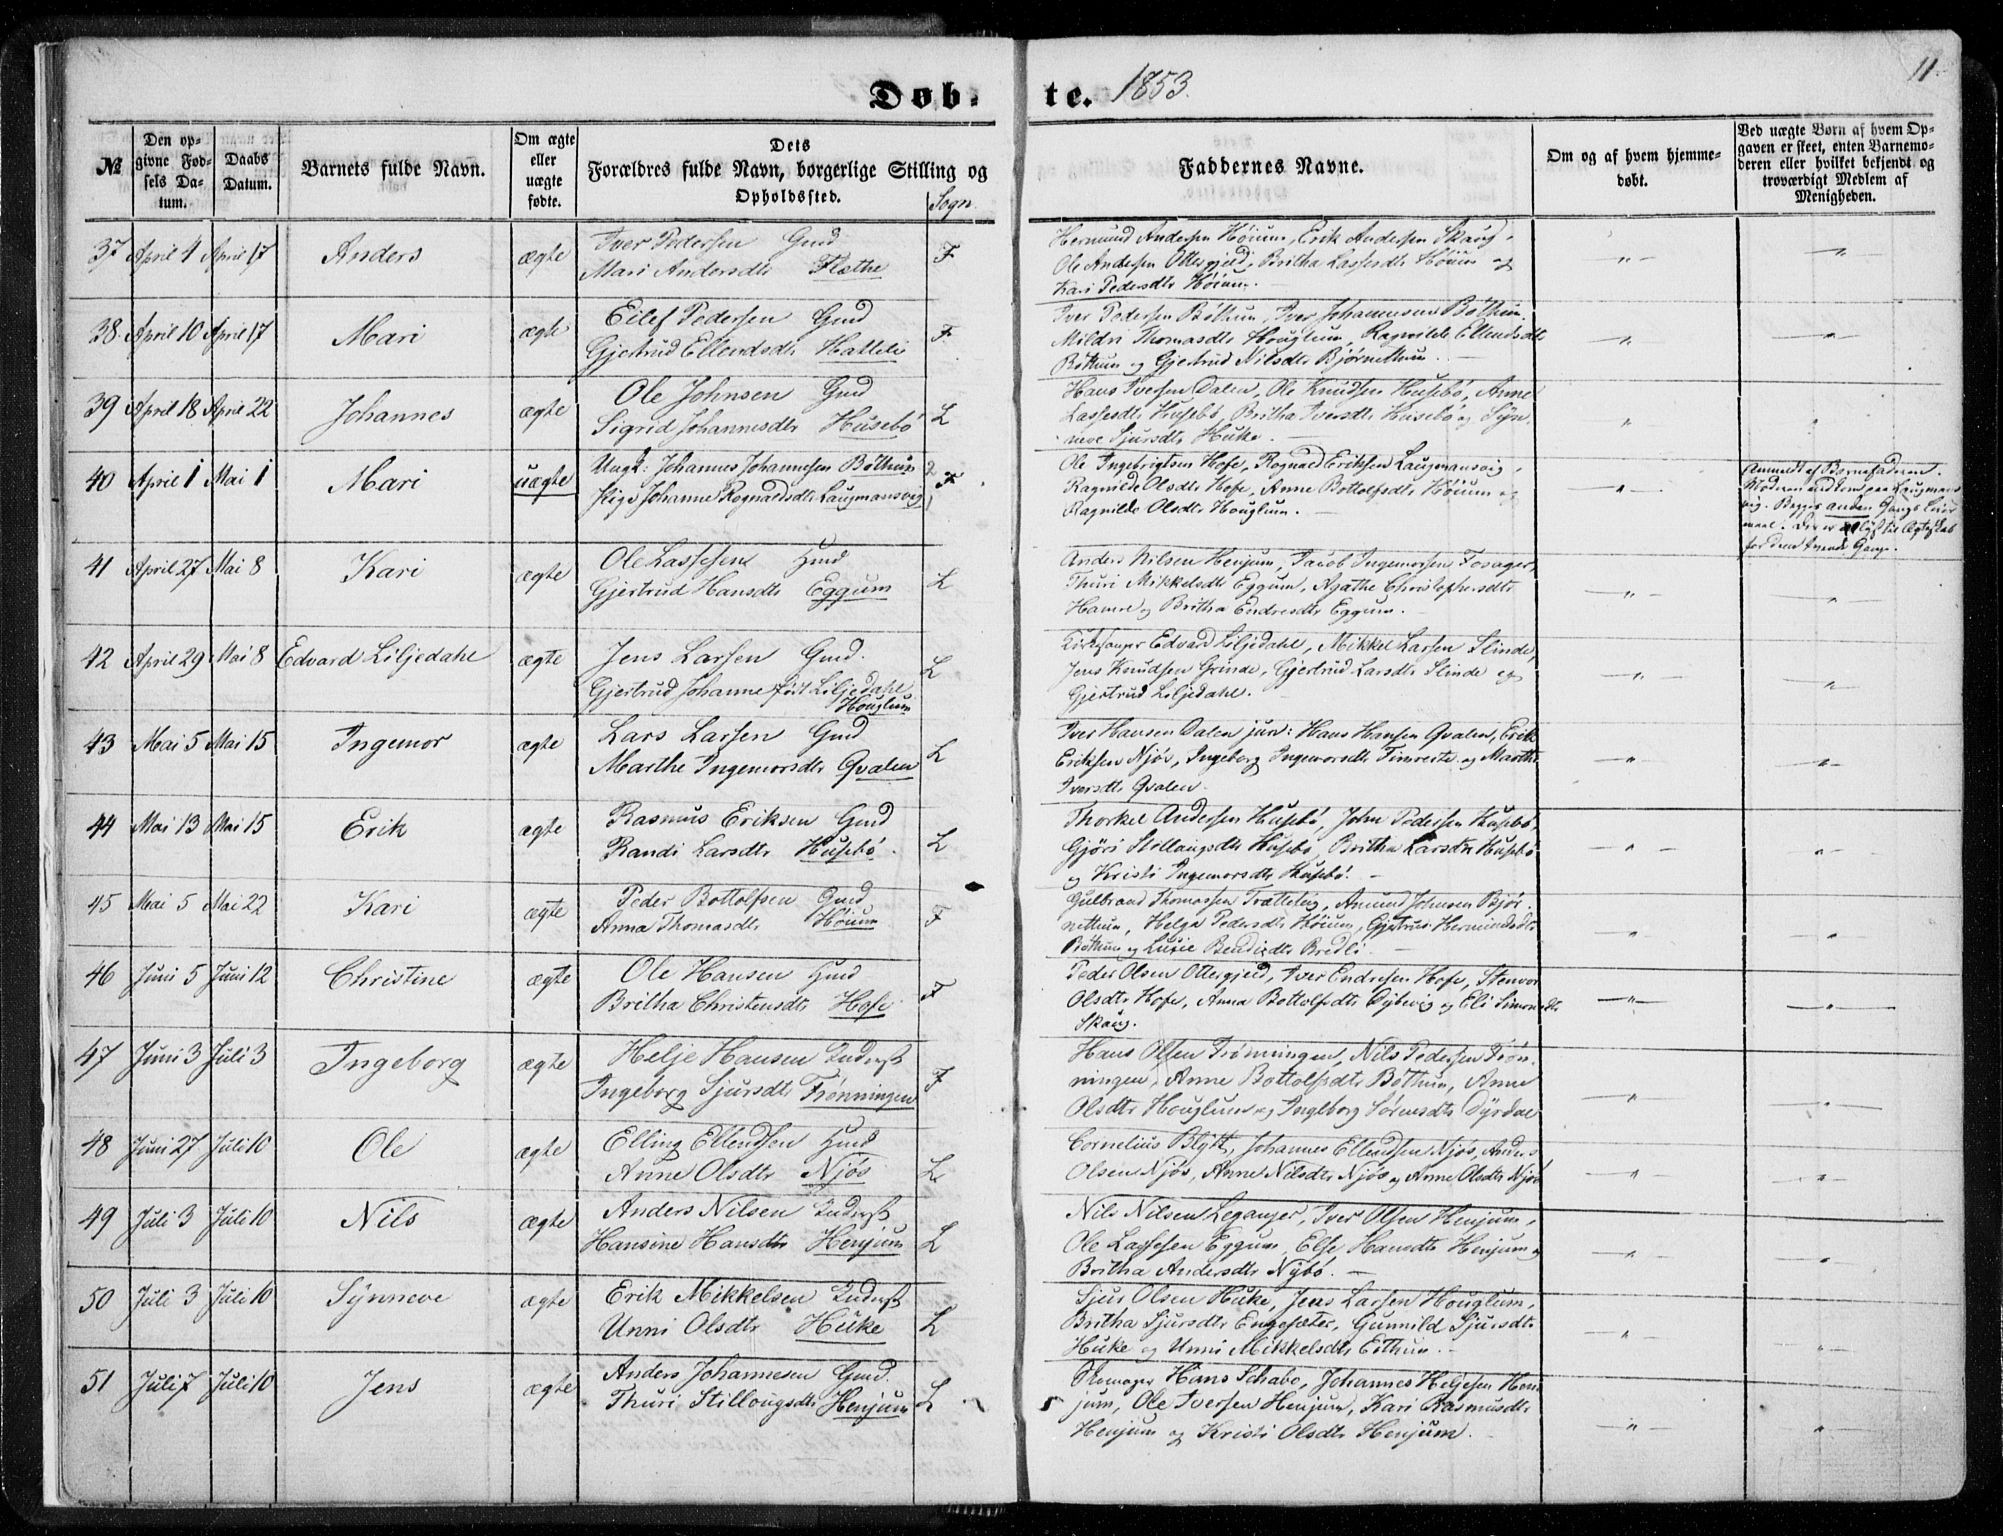 Døb-te. 1853. 11.
№ | Den opgivne Fødsels Datum. | Daabs Datum. | Barnets fulde Navn. | Om ægte eller uægte fødte. | Dets Forældres fulde Navn, borgerlige Stilling og Opholdssted. | Sogn. | Faddernes Navne. | Om og af hvem hjemmedøbt. | Ved uægte Børn af hvem Opgaven er skeet, enten Barnemoderen eller hvilket bekjendt og troværdigt Medlem af Menigheden.
37 April 4 April 17 Anders ægte Iver Pedersen Gmd F Hermund Andersen Høium, Erik Andersen Skaug,
Mari Andersdtr Flathe Ole Andersen Ottergjeld, Britha Lassesdtr Höium og
Kari Pedersdtr Höium.
38. April 10 April 17 Mari ægte Eilef Pedersen Gmd F Iver Pedersen Böthum, Iver Johannesen Böthum.
Gjertrud Ellendsdtr Hatteli Mildri Thomasdtr Houglum, Ragnilde Ellendsdtr
Böthum og Gjertrud Nilsdtr Björnethun.
39 April 18 April 22 Johannes ægte Ole Johnsen Gmd L Hans Iversen Dalen, Ole Knudsen Husebö, Anne
Sigrid Johannesdtr Husebö Lassesdtr Husebö, Britha Iversdtr Husebö og Syn-
neve Sjursdtr Huke.
40 April 1 Mai 1 Mari uægte Ungk: Johannes Johannesen Böthum 2 F Ole Ingebrigtsen Hofe, Rognald Eriksen Laugmansvig, Anmeldt af Barnefaderen.
Pige Johanne Rognaldsdtr Laugmansvig 1 Ragnilde Olsdtr Hofe, Anne Bottolfsdtr Höium og Moderen
Ragnilde Olsdtr Houglum. Begges anden Gangs Leier-
maal.
41 April 27 Mai 8 Kari ægte Ole Lassesen Gmd L Anders Nilsen Henjum, Jacob Ingemorsen Fosager,
Gjertrud Hansdtr Eggum Thuri Mikkelsdtr Eggum, Agathe Christophersdtr
Hamre og Britha Endresdtr Eggum.
42 April 29 Mai 8 Edvard Liljedahl ægte Jens Larsen Gmd. L Kirkesanger Edvard Liljedahl, Mikkel Larsen Slinde,
Gjertrud Johanne født Liljedahl Jens Knudsen Grinde, Gjertrud Larsdtr Slinde og
Houglum Gjertrud Liljedahl.
43 Mai 5 Mai 15 Ingemor ægte Lars Larsen Gmd L Iver Hansen Dalen jun: Hans Hansen Qvalen, Erik
Marthe Ingemorsdtr Qvalen Eriksen Njøs, Ingeborg Ingemorsdtr Timreite og Marthe
Iversdtr Qvalen.
44 Mai 13 Mai 15 Erik ægte Rasmus Eriksen Gmd L Thorkel Andersen Husebö, John Pedersen Husebö,
Randi Larsdtr Husebö. Gjöri Stillaugsdtr Husebö, Britha Larsdtr Husebö
og Kristi Ingemorsdtr Husebö.
45 Mai 5 Mai 22 Kari ægte Peder Bottolfsen Gmd F Gulbrand Thomassen Tratteteig, Amund Johnsen Bjør-
Anna Thomasdtr Höium nethun, Helga Pedersdtr Höium, Gjertrud Hermundsdtr
Böthum og Lucie Bendixdtr Bredli
46 Juni 5 Juni 12 Christine ægte Ole Hansen Gmd F Peder Olsen Ottergjeld, Iver Endresen Hofe, Stenvor
Britha Christensdtr Hofe Olsdtr Hofe, Anna Bottolfsdtr Dybvig og Eli Simonsdtr
Skaug.
47 Juni 3 Juli 3 Ingeborg ægte Helje Hansen Inderst F Hans Olsen Frønningen, Nils Pedersen Frøn-
Ingeborg Sjursdtr Frønningen ningen, Anne Bottolfsdtr Böthum, Anne
Olsdtr Houglum og Ingeborg Sörensdtr Dyrdal
48 Juni 27 Juli 10 Ole ægte Elling Ellendsen Gmd L Cornelius Blytt, Johannes Ellendsen Njøs, Anders
Anne Olsdtr Njøs Olsen Njøs, Anne Nilsdtr Njøs og Anne Olsdtr Njøs
49 Juli 3 Juli 10 Nils ægte Anders Nilsen Inderst L Nils Nilsen Leganger, Iver Olsen Henjum,
Hansine Hansdtr Henjum Ole Lassesen Eggum, Else Hansdtr Henjum og
Britha Andersdtr Nybö.
50 Juli 3 Juli 10 Synneve ægte Erik Mikkelsen Inderst L Sjur Olsen Huke, Jens Larsen Houglum,
Unni Olsdtr Huke Britha Sjursdtr Engesæter, Gunnild Sjursdtr
Huke og Unni Mikkelsdtr Eithun.
51 Juli 7 Juli 10 Jens ægte Anders Johannesen Gmd. L Skomager Hans Schabo, Johannes Heljesen Hen-
Thuri Stillougsdtr Henjum jum, Ole Iversen Henjum, Kari Rasmusdtr
Henjum og Kristi Olsdtr Henjum.